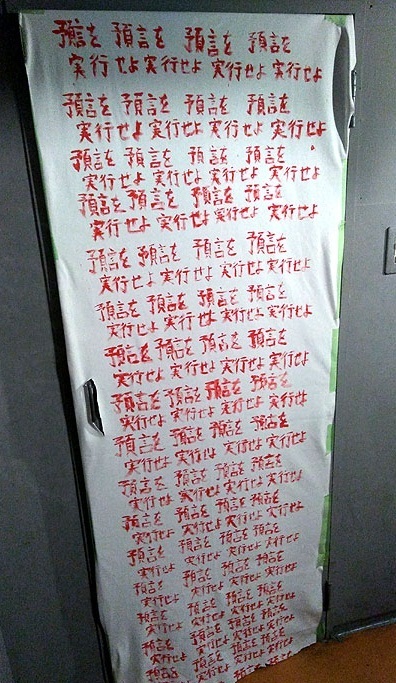 預言を 預言を 預言を 預言を
実行せよ 実行せよ 実行せよ 実行せよ
預言を 預言を 預言を 預言を
実行せよ 実行せよ 実行せよ 実行せよ
預言を 預言を 預言を 預言を
実行せよ 実行せよ 実行せよ 実行せよ
預言を 預言を 預言を 預言を
実行せよ 実行せよ 実行せよ 実行せよ
預言を 預言を 預言を 預言を
実行せよ 実行せよ 実行せよ 実行せよ
預言を 預言を 預言を 預言を
実行せよ 実行せよ 実行せよ 実行せよ
預言を 預言を 預言を 預言を
実行せよ 実行せよ 実行せよ 実行せよ
預言を 預言を 預言を 預言を
実行せよ 実行せよ 実行せよ 実行せよ
預言を 預言を 預言を 預言を
実行せよ 実行せよ 実行せよ 実行せよ
預言を 預言を 預言を 預言を
実行せよ 実行せよ 実行せよ 実行せよ
預言を 預言を 預言を 預言を
実行せよ 実行せよ 実行せよ 実行せよ
預言を 預言を 預言を 預言を
実行せよ 実行せよ 実行せよ 実行せよ
預言を 預言を 預言を 預言を
実行せよ 実行せよ 実行せよ 実行せよ
預言を 預言を 預言を 預言を
実行せよ 実行せよ 実行せよ 実行せよ
預言を 預言を 預言を 預言を
実行せよ 実行せよ 実行せよ 実行せよ